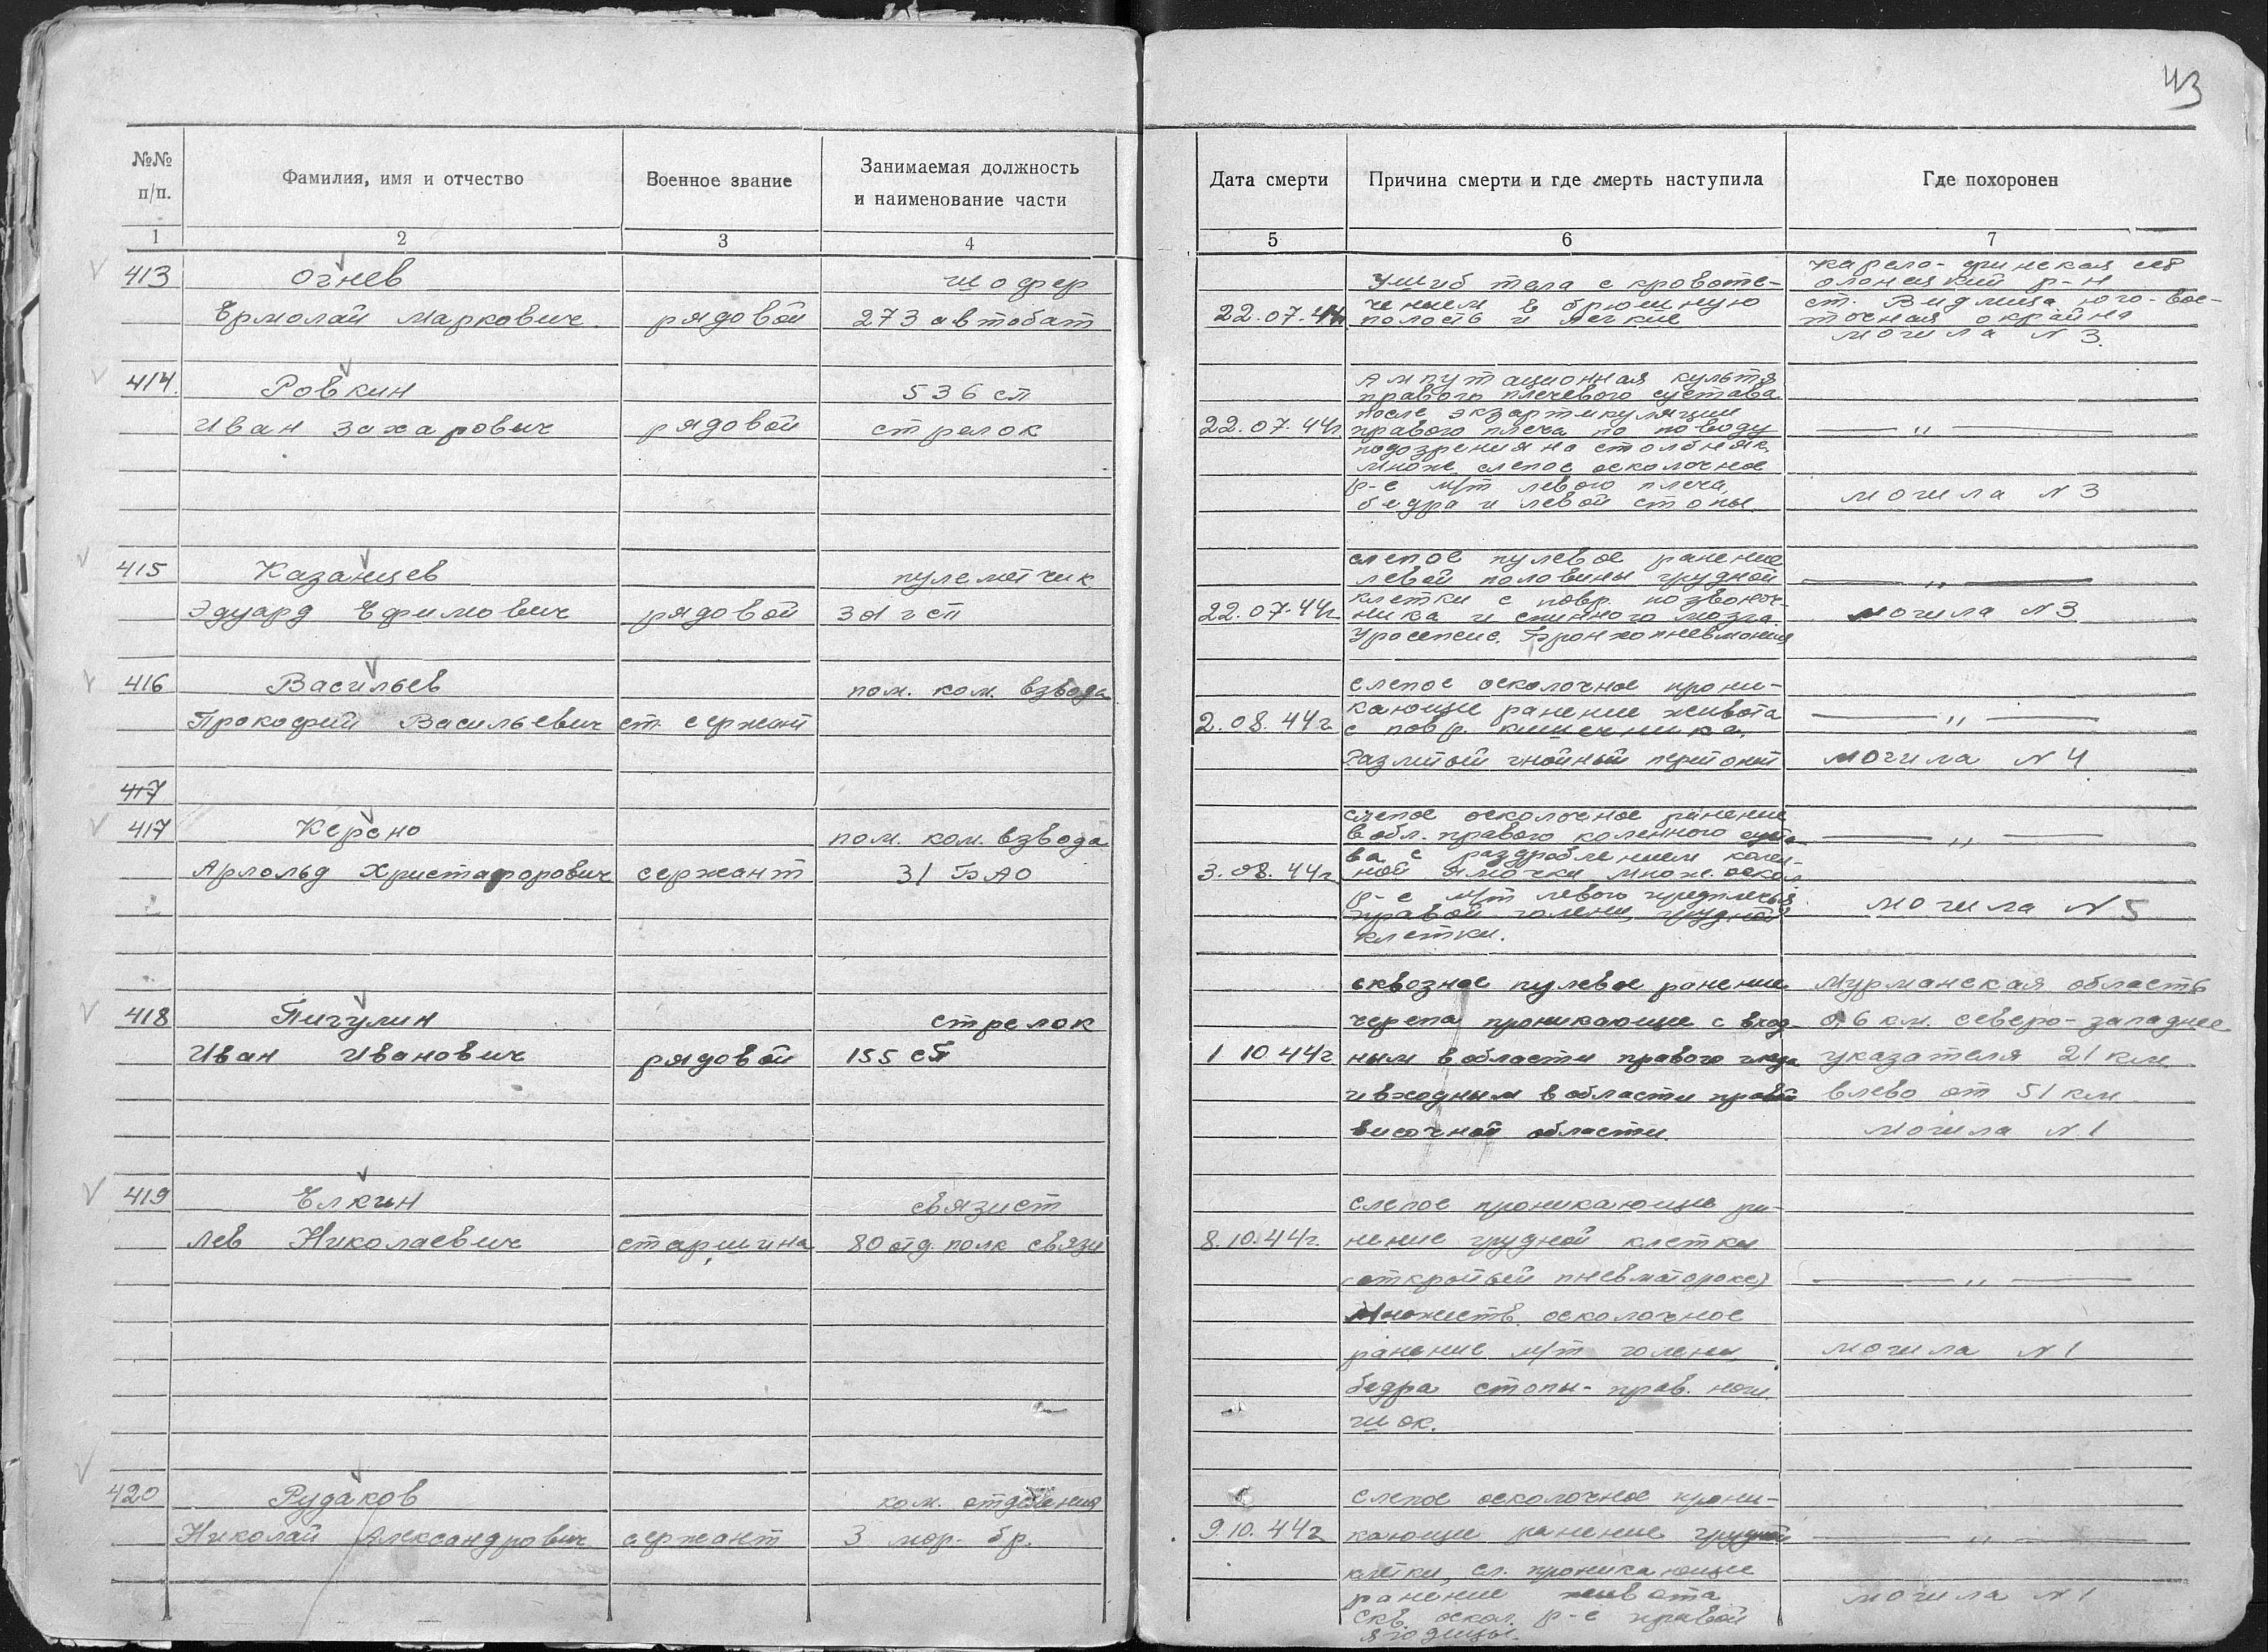 43
№№ п/п.
Фамилия, имя и отчество
Военное звание
Занимаемая должность
и наименование части
Дата смерти
Причина смерти и где смерть наступила
Где похоронен
1 2 3 4 5 6 7
413 Огнев шофер
Ермолай Маркович рядовой 273 автобат
22.07.44
Ушиб тела с кровоте-
чением в брюшную
полость и легкие
Карело-финская
олонецкий р-н
ст. Видлица юго-вос-
точная окрайна
могила N 3.
414. Ровкин 536 сп
Иван Захарович рядовой стрелок
22.07.44г
Ампутационная культя
правого плечевого сустава
после экзартикуляции
правого плеча по поводу
подозрения на столбняк
множ. слепое осколочное
р-е м/т левого плеча,
бедра и левой стопы.
— " —
могила N 3
415 Казанцев пулеметчик
Эдуард Ефимович рядовой сп
22.07.44г
слепое пулевое ранение
левой половины грудной
клетки с повр. позвоноч-
ника и спинного мозга.
Уросепсис. Бронхопневмония
— " —
могила N 3
416 Васильев пом. ком. взвода
Прокофий Васильевич ст. сержант
2.08.44г
слепое осколочное прони-
кающее ранение живота
с повр. кишечника.
Разлитой гнойный перитонит
— " —
могила N 4
417
417 Керено пом. ком. взвода
Арлольд Христафорович сержант 31 БАО
3.08.44г
слепое осколочное ранение
в обл. правого коленного суста-
ва с раздроблением колен-
ной ямочки множ. оскол
р-е м/т левого предплечья
правой голени, грудной
клетки.
— " —
могила N 5
418 Пигулин стрелок
Иван Иванович рядовой 155 сп
1 10.44г
сквозное пулевое ранение
черепа проникающее с вход-
ным в области правого глаза
и входным в области правой
височной области.
Мурманская область
0,6 км. северо-западнее
указателя 21 км
влево от 51 км
могила N 1
419 Елкин связист
Лев Николаевич старшина 80 отд. полк связи
8.10.44г.
слепое проникающие ра-
нение грудной клетки
(открытый пневматоракс)
Множеств. осколочное
ранение м/т голени,
бедра стопы - прав. ноги
шок.
— " —
могила N 1
420 Рудаков ком. отделения
Николай Александрович сержант 3 мор. бр.
9.10.44г
слепое осколочное прони-
кающее ранение грудной
клетки, сл. проникающее
ранение живота
Скв. оскол. р-е правой
ягодицы.
— " —
могила N 1